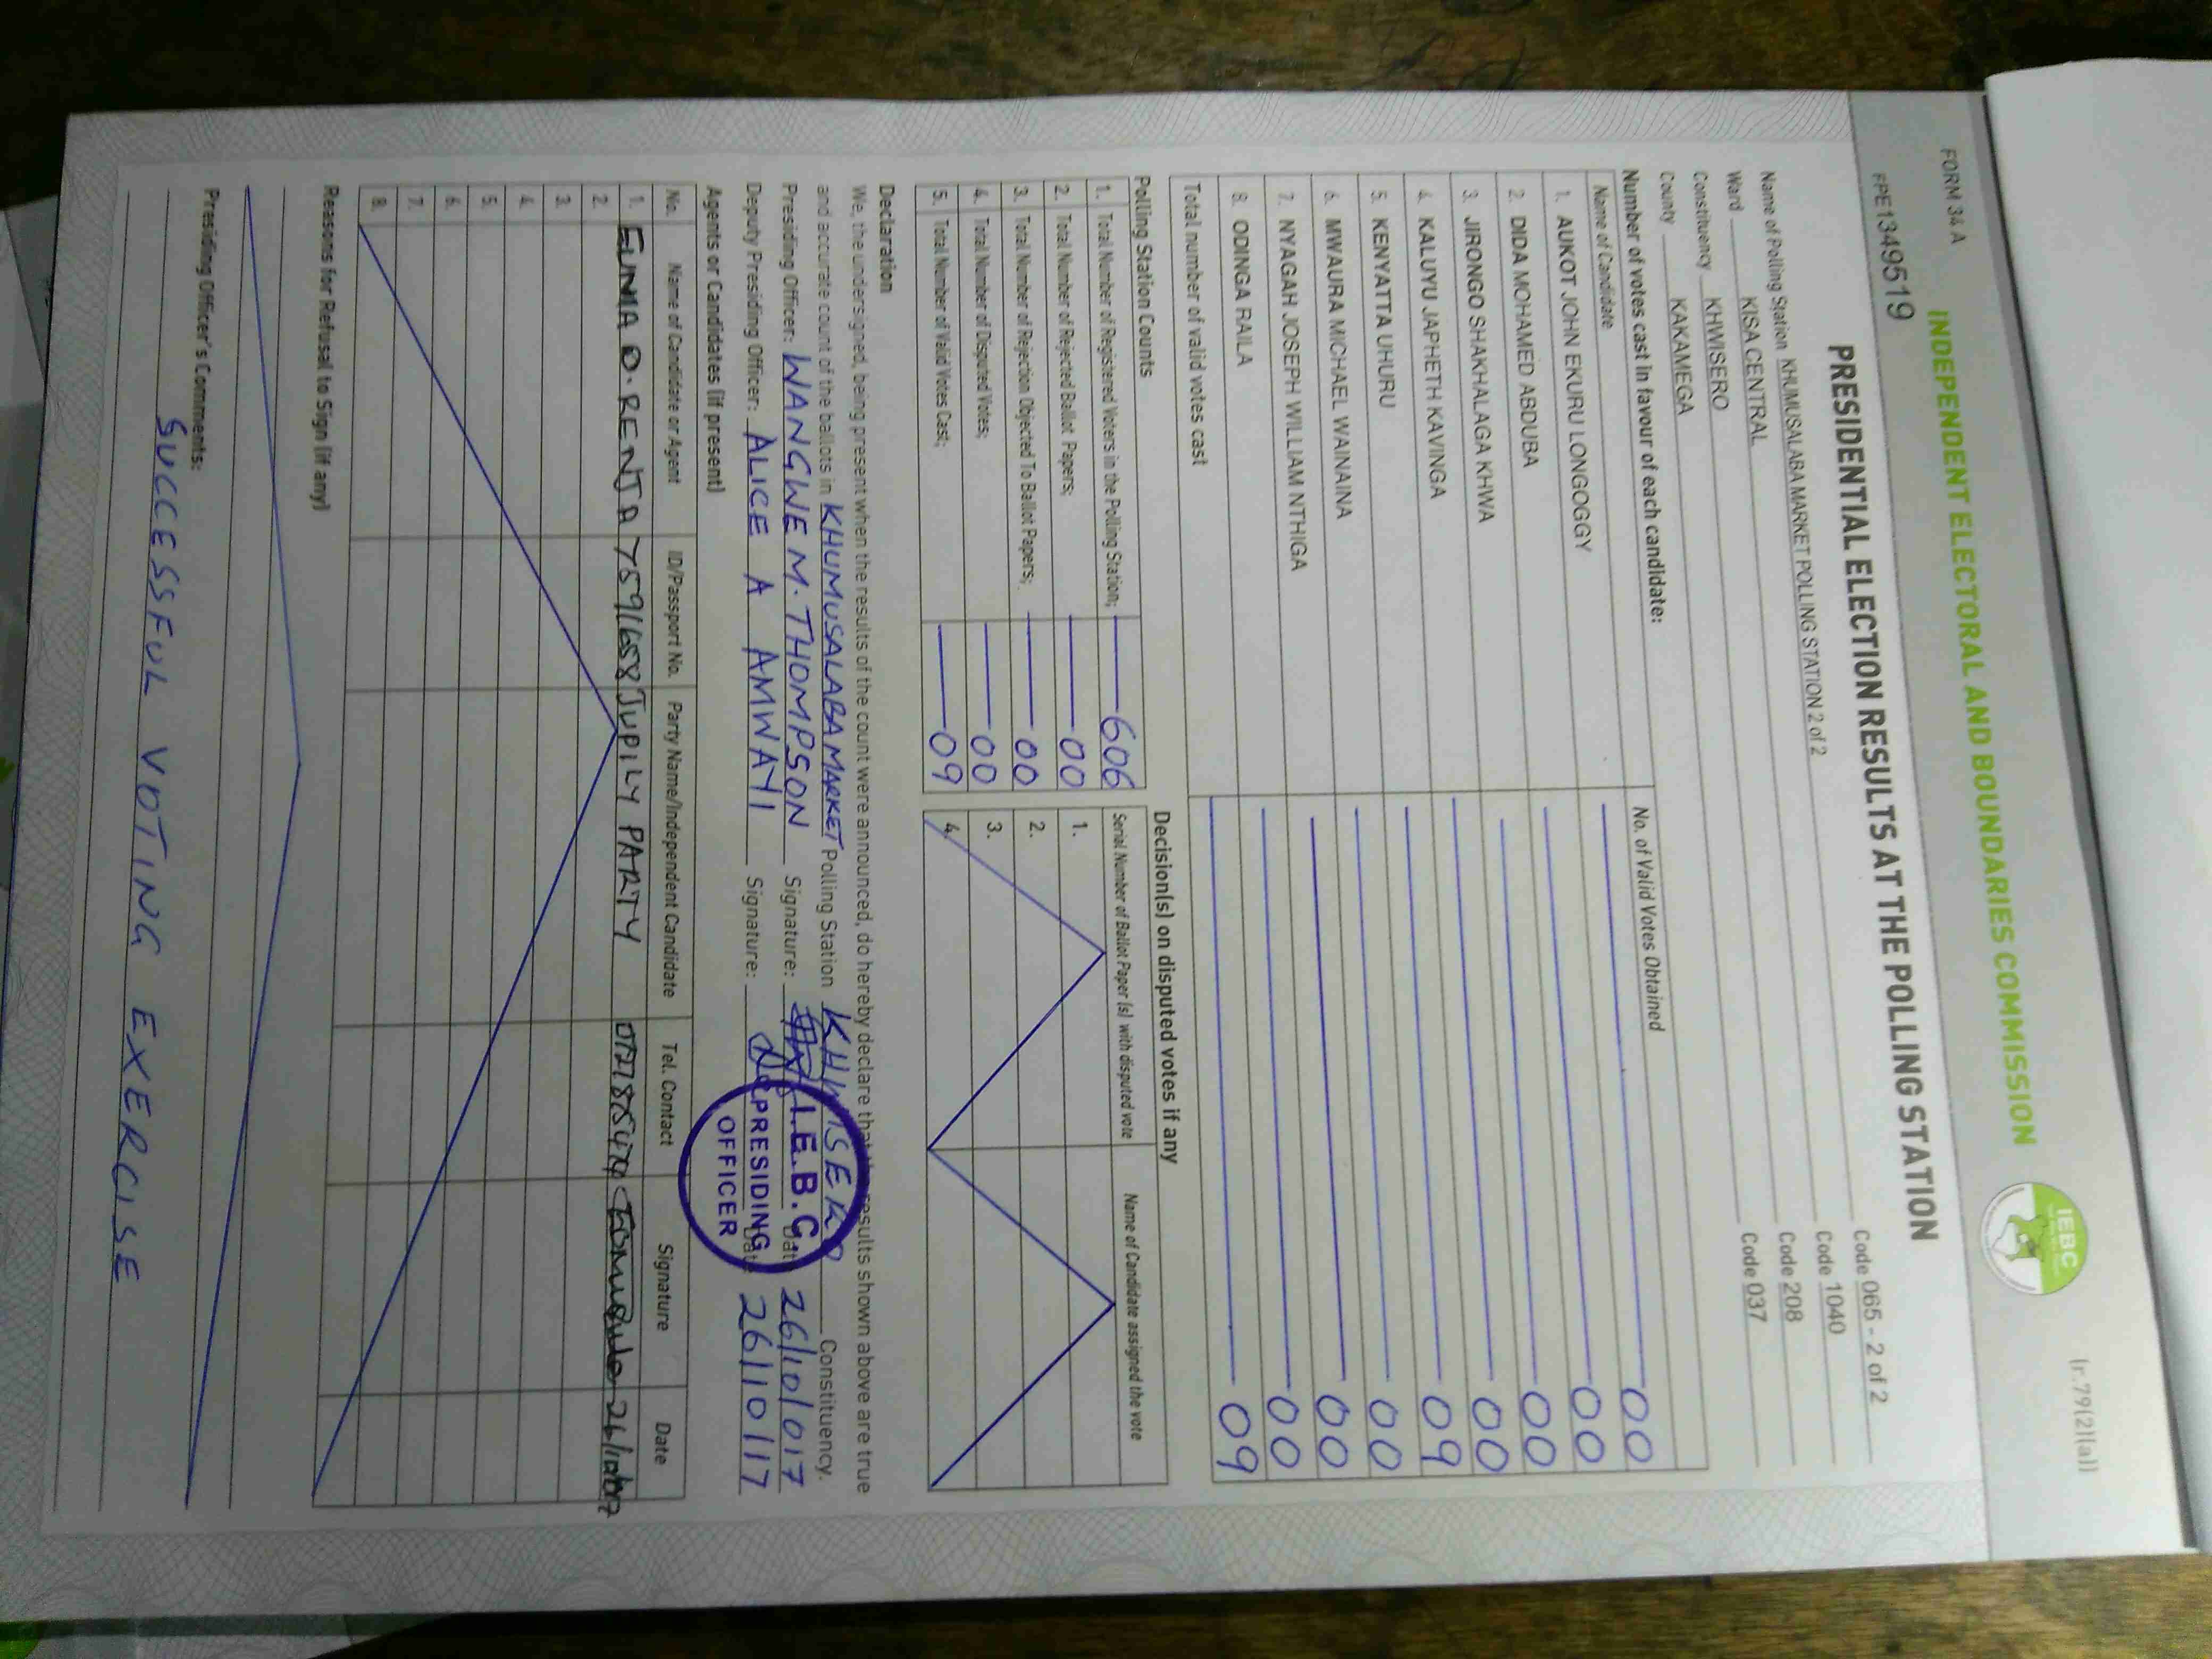 (r.79(2)(a))
FORM 34 A
INDEPENDENT ELECTORAL AND BOUNDARIES COMMISSION
IEBC
FPE1349519
PRESIDENTIAL ELECTION RESULTS AT THE POLLING STATION
Name of Polling Station KHUMUSALABA MARKET POLLING STATION 2 of 2 Code 065 - 2 of 2
Ward KISA CENTRAL Code 1040
Constituency KHWISERO Code 208
County KAKAMEGA Code 037
Number of votes cast in favour of each candidate:
Name of Candidate No. of Valid Votes Obtained
1. AUKOT JOHN EKURU LONGOGGY 00
2. DIDA MOHAMED ABDUBA 00
3. JIRONGO SHAKHALAGA KHWA 00
4. KALUYU JAPHETH KAVINGA 00
5. KENYATTA UHURU 09
6. MWAURA MICHAEL WAINAINA 00
7. NYAGAH JOSEPH WILLIAM NTHIGA 00
8. ODINGA RAILA 00
Total number of valid votes cast 09
Polling Station Counts
1. Total Number of Registered Voters in the Polling Station; 606
2. Total Number of Rejected Ballot Papers; 00
3. Total Number of Rejection Objected To Ballot Papers; 00
4. Total Number of Disputed Votes; 00
5. Total Number of Valid Votes Cast; 09
Decision(s) on disputed votes if any
Serial Number of Ballot Paper (s) with disputed vote Name of Candidate assigned the vote
1.
2.
3.
4.
Declaration
We, the undersigned, being present when the results of the count were announced, do hereby declare that the results shown above are true
and accurate count of the ballots in KHUMUSALABA MARKET Polling Station KHWISERO Constituency.
Presiding Officer: WANGWE M. THOMPSON Signature: Date 26/10/017
Deputy Presiding Officer: ALICE A AMWAYI Signature: Date 26/10/17
I.E.B.C
PRESIDING
OFFICER
Agents or Candidates (if present)
No. Name of Candidate or Agent ID/Passport No. Party Name/Independent Candidate Tel. Contact Signature Date
1. 7591658 JUPILY PARTY
2.
3.
4.
5.
6.
7.
8.
Reasons for Refusal to Sign (if any)
Presiding Officer's Comments:
SUCCESSFUL VOTING EXERCISE